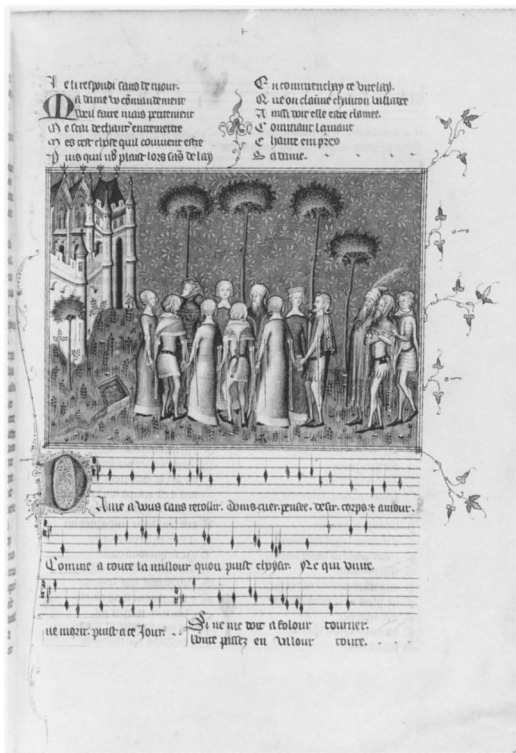 Je li respondi sans demour.
Ma dame vo comandement
Vueil faire mais petitement
Me scai de chant entremettre
Mes cest chose quil convient estre
Puis quil vous plaist lors sans delay
En commencay ce virelay.
Que on claime chancon balladee
Ainsi doit elle estre clamee.
Comment lamant
Chante em pres
Sa dame.
Dame a vous sans retollir. Doins cuer. pensee. desir. corps & amour.
Comme a toute la millour quon puist choysir. Ne qui vivre.
ne morir. puist a ce Jour.
Si ne me doit a folour tourner.
bonte passez en valour toute.